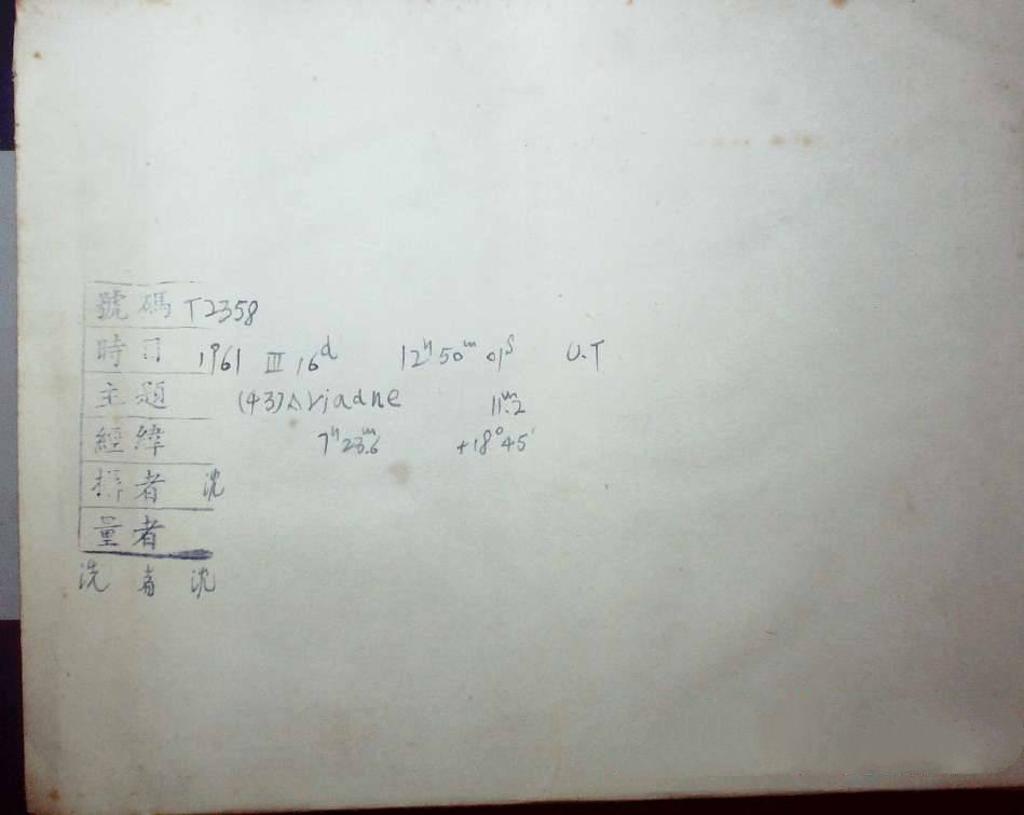 號碼 T2358
時日 1961 III 16d 12h 50m 01s U.T
主題 (43) Ariadne 11m.2
經緯 7h 23m.6 +18°45'
攝者 沈
量者
洗者 沈